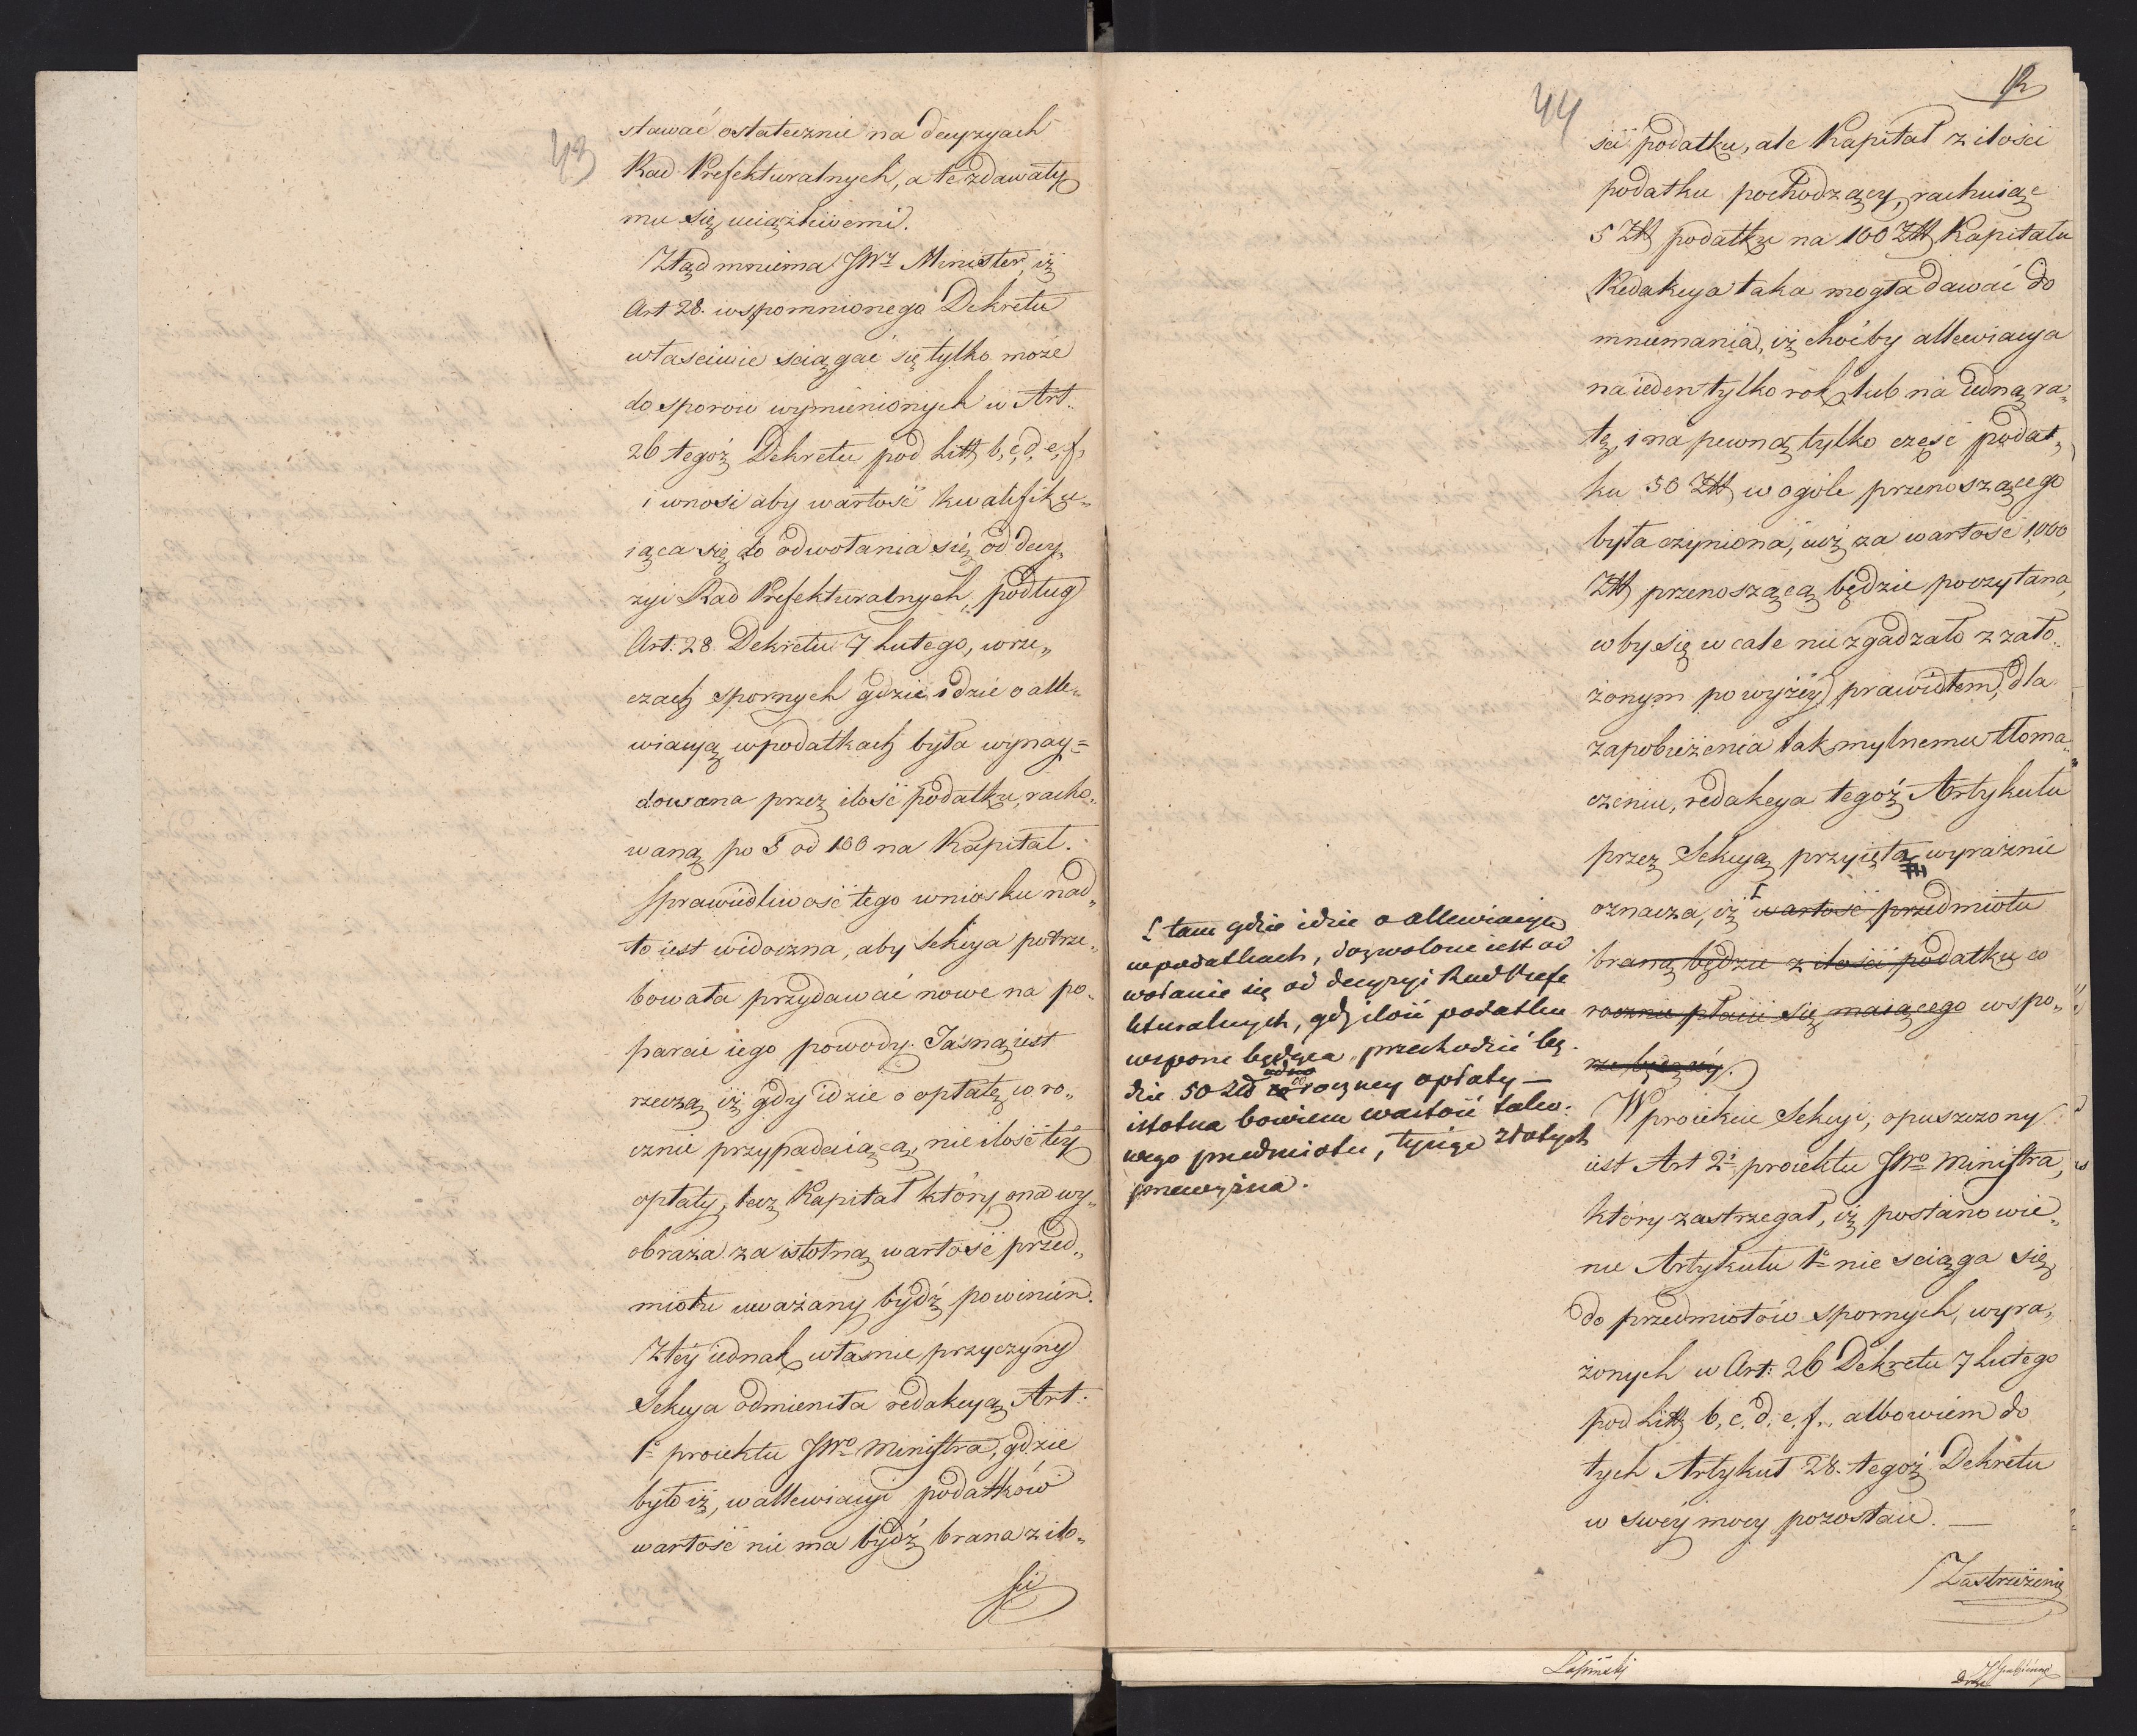 43
stawać ostatecznie na decyzyach
Rad Prefekturalnych, a te zdawały
mu się uciążliwemi.
Ztąd mniema JWy Minister, iż
Art 28. wspomnionego Dekretu
właściwie sciągać się tylko może
do sporow wymienionych w Art.
26 tegoż Dekretu pod Litt b, c, d, e, f,
i wnosi aby wartość kwalifiku„
iąca się do odwołania się od decy„
zyi Rad Prefekturalnych, podług
Art: 28. Dekretu 7 Lutego, w rze„
czach spornych gdzie idzie o alle„
wiacyą w podatkach była wynay=
dowana przez ilość podatku, racho„
waną po 5 od 100 na Kapitał.
Sprawiedliwość tego wniosku nad„
to iest widoczna, aby Sekcya potrze„
bowała przydawać nowe na po„
parcie iego powody. Jasną iest
rzeczą iż gdy idzie o opłatę co ro„
cznie przypadaiącą, nie ilość tey
opłaty, lecz Kapitał który ona wy„
obraża za istotną wartość przed„
miotu uważany bydź powinien.
Z tey iednak własnie przyczyny
Sekcya odmieniła redakcyą Art:
1o proiektu JWo Ministra, gdzie
było iż, w allewiacyi podatków
wartość nie ma bydź brana z ilo„
ści
44
12
ści podatku, ale Kapitał z ilości
podatku pochodzący, rachuiąc
5 Złł podatku na 100 Złł Kapitału
Redakcya taka mogła dawać do
mniemania, iż choćby allewiacya
na ieden tylko rok, lub na iedną ra„
tę, i na pewną tylko część podat„
ku 50 Złł w ogóle przenoszącego
była czyniona, iuż za wartość 1,000
Złł przenoszącą będzie poczytana,
coby się wcale nie zgadzało z zało„
żonym powyżey prawidłem, dla
zapobieżenia tak mylnemu tłoma„
czeniu, redakcya tegoż Artykułu
przez Sekcyą przyięta wyraźnie
oznacza, iż wartość przedmiotu
braną będzie z ilości podatku co
rocznie płacić się maiącego w spo„
rze będący.
[ tam gdzie idzie o allewiacyą
w podatkach, dozwolone iest od
wołanie się od decyzyi Rad Prefe
kturalnych, gdy ilość podatku
w sporze będąca, przechodzić bę„
dzie 50 Złł roczney opłaty —
istotna bowiem wartość tako„
wego przedmiotu, tysiąc złotych
przewyższa.
W proiekcie Sekcyi, opuszczony
iest Art 2i proiektu JWo Ministra,
który zastrzegał, iż postanowie„
nie Artykułu 1o nie sciąga się
do przedmiotów spornych, wyra„
żonych w Art: 26 Dekretu 7 Lutego
pod Litt b, c, d, e, f., albowiem do
tych Artykuł 28. tegoż Dekretu
w swey mocy pozostaie. —
Zastrzeżenie
Łapiński